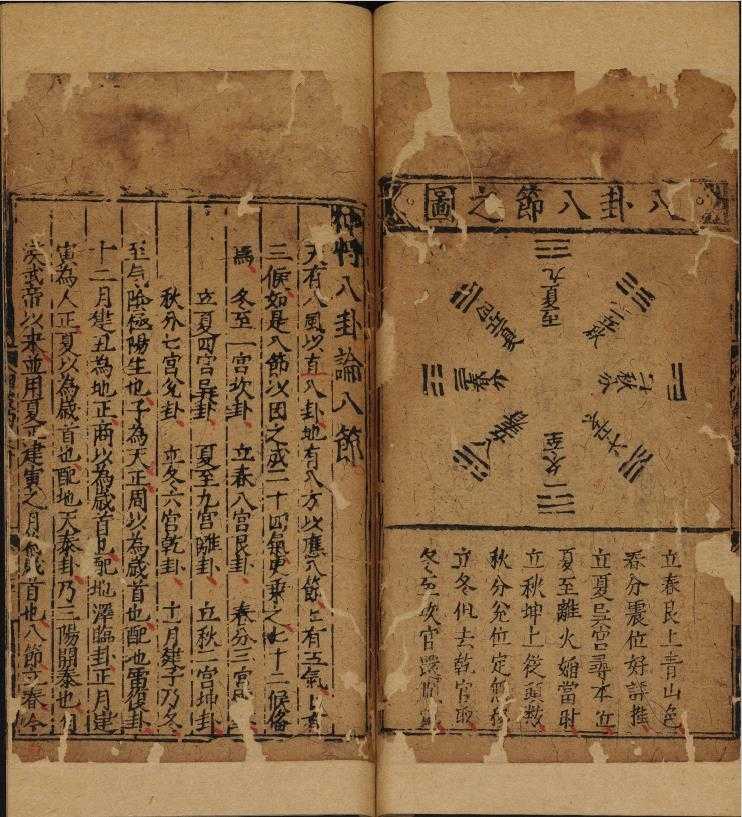 八卦八節之圖
九夏至
二立秋
七秋分
六立冬
一冬至
八立春
三春分
四立夏
立春艮上青山色
春分震位好詳推
立夏巽宮尋本立
夏至離火焰當时
立秋坤上後頭数
秋分兌位定無
立冬但去乾宮取
冬至坎宮
八卦論八節
天有八風以直八卦地有八方以應八節上有五氣上有
三候如是八節以因之成二十四氣更乗之七十二候備
焉 冬至一宮坎卦 立春八宮艮卦 春分三宮
立夏四宮巽卦 夏至九宮離卦 立秋二宮坤卦
秋分七宮兌卦 立冬六宮乾卦 十一月建子乃冬
至气陰極陽生也子為天正周以為歳首也配地雷復卦
十二月建丑為地正商以為歳首也配地澤臨卦正月建
寅為人正夏以為歳首也配地天泰卦乃三陽開泰也自
漢武帝以来並用夏正建寅之月為歳首也八節立春今